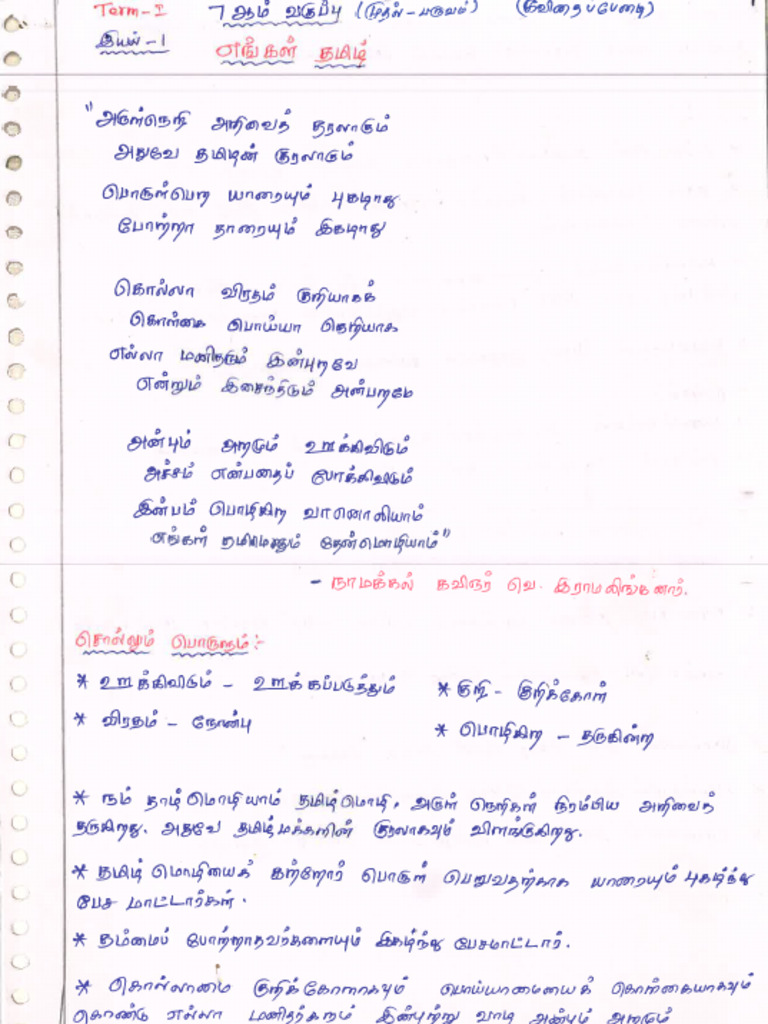 Term-I 7ஆம் வகுப்பு (முதல்-பருவம்) (கவிதைப்பேழை)
இயல்-1 எங்கள் தமிழ்
"அருள்நெறி அறிவைத் தரலாகும்
அதுவே தமிழின் குரலாகும்
பொருள்பெற யாரையும் புகழாது
போற்றா தாரையும் இகழாது
கொல்லா விரதம் குறியாகக்
கொள்கை பொய்யா நெறியாக
எல்லா மனிதரும் இன்புறவே
என்றும் இசைந்திடும் அன்பறமே
அன்பும் அறமும் ஊக்கிவிடும்
அச்சம் என்பதைப் போக்கிவிடும்
இன்பம் பொழிகிற வானொலியாம்
எங்கள் தமிழெனும் தேன்மொழியாம்"
- நாமக்கல் கவிஞர் வெ. இராமலிங்கனார்.
சொல்லும் பொருளும்:-
* ஊக்கிவிடும் - ஊக்கப்படுத்தும் * குறி - குறிக்கோள்
* விரதம் - நோன்பு * பொழிகிற - தருகின்ற
* நம் தாய்மொழியாம் தமிழ்மொழி, அருள் நெறிகள் நிரம்பிய அறிவைத்
தருகிறது. அதுவே தமிழ்மக்களின் குரலாகவும் விளங்குகிறது.
* தமிழ் மொழியைக் கற்றோர் பொருள் பெறுவதற்காக யாரையும் புகழ்ந்து
பேச மாட்டார்கள்.
* தம்மைப் போற்றாதவர்களையும் இகழ்ந்து பேசமாட்டார்.
* கொல்லாமை குறிக்கோளாகவும் பொய்யாமையைக் கொள்கையாகவும்
கொண்டு எல்லா மனிதர்களும் இன்புற்று வாழ அன்பும் அறமும்